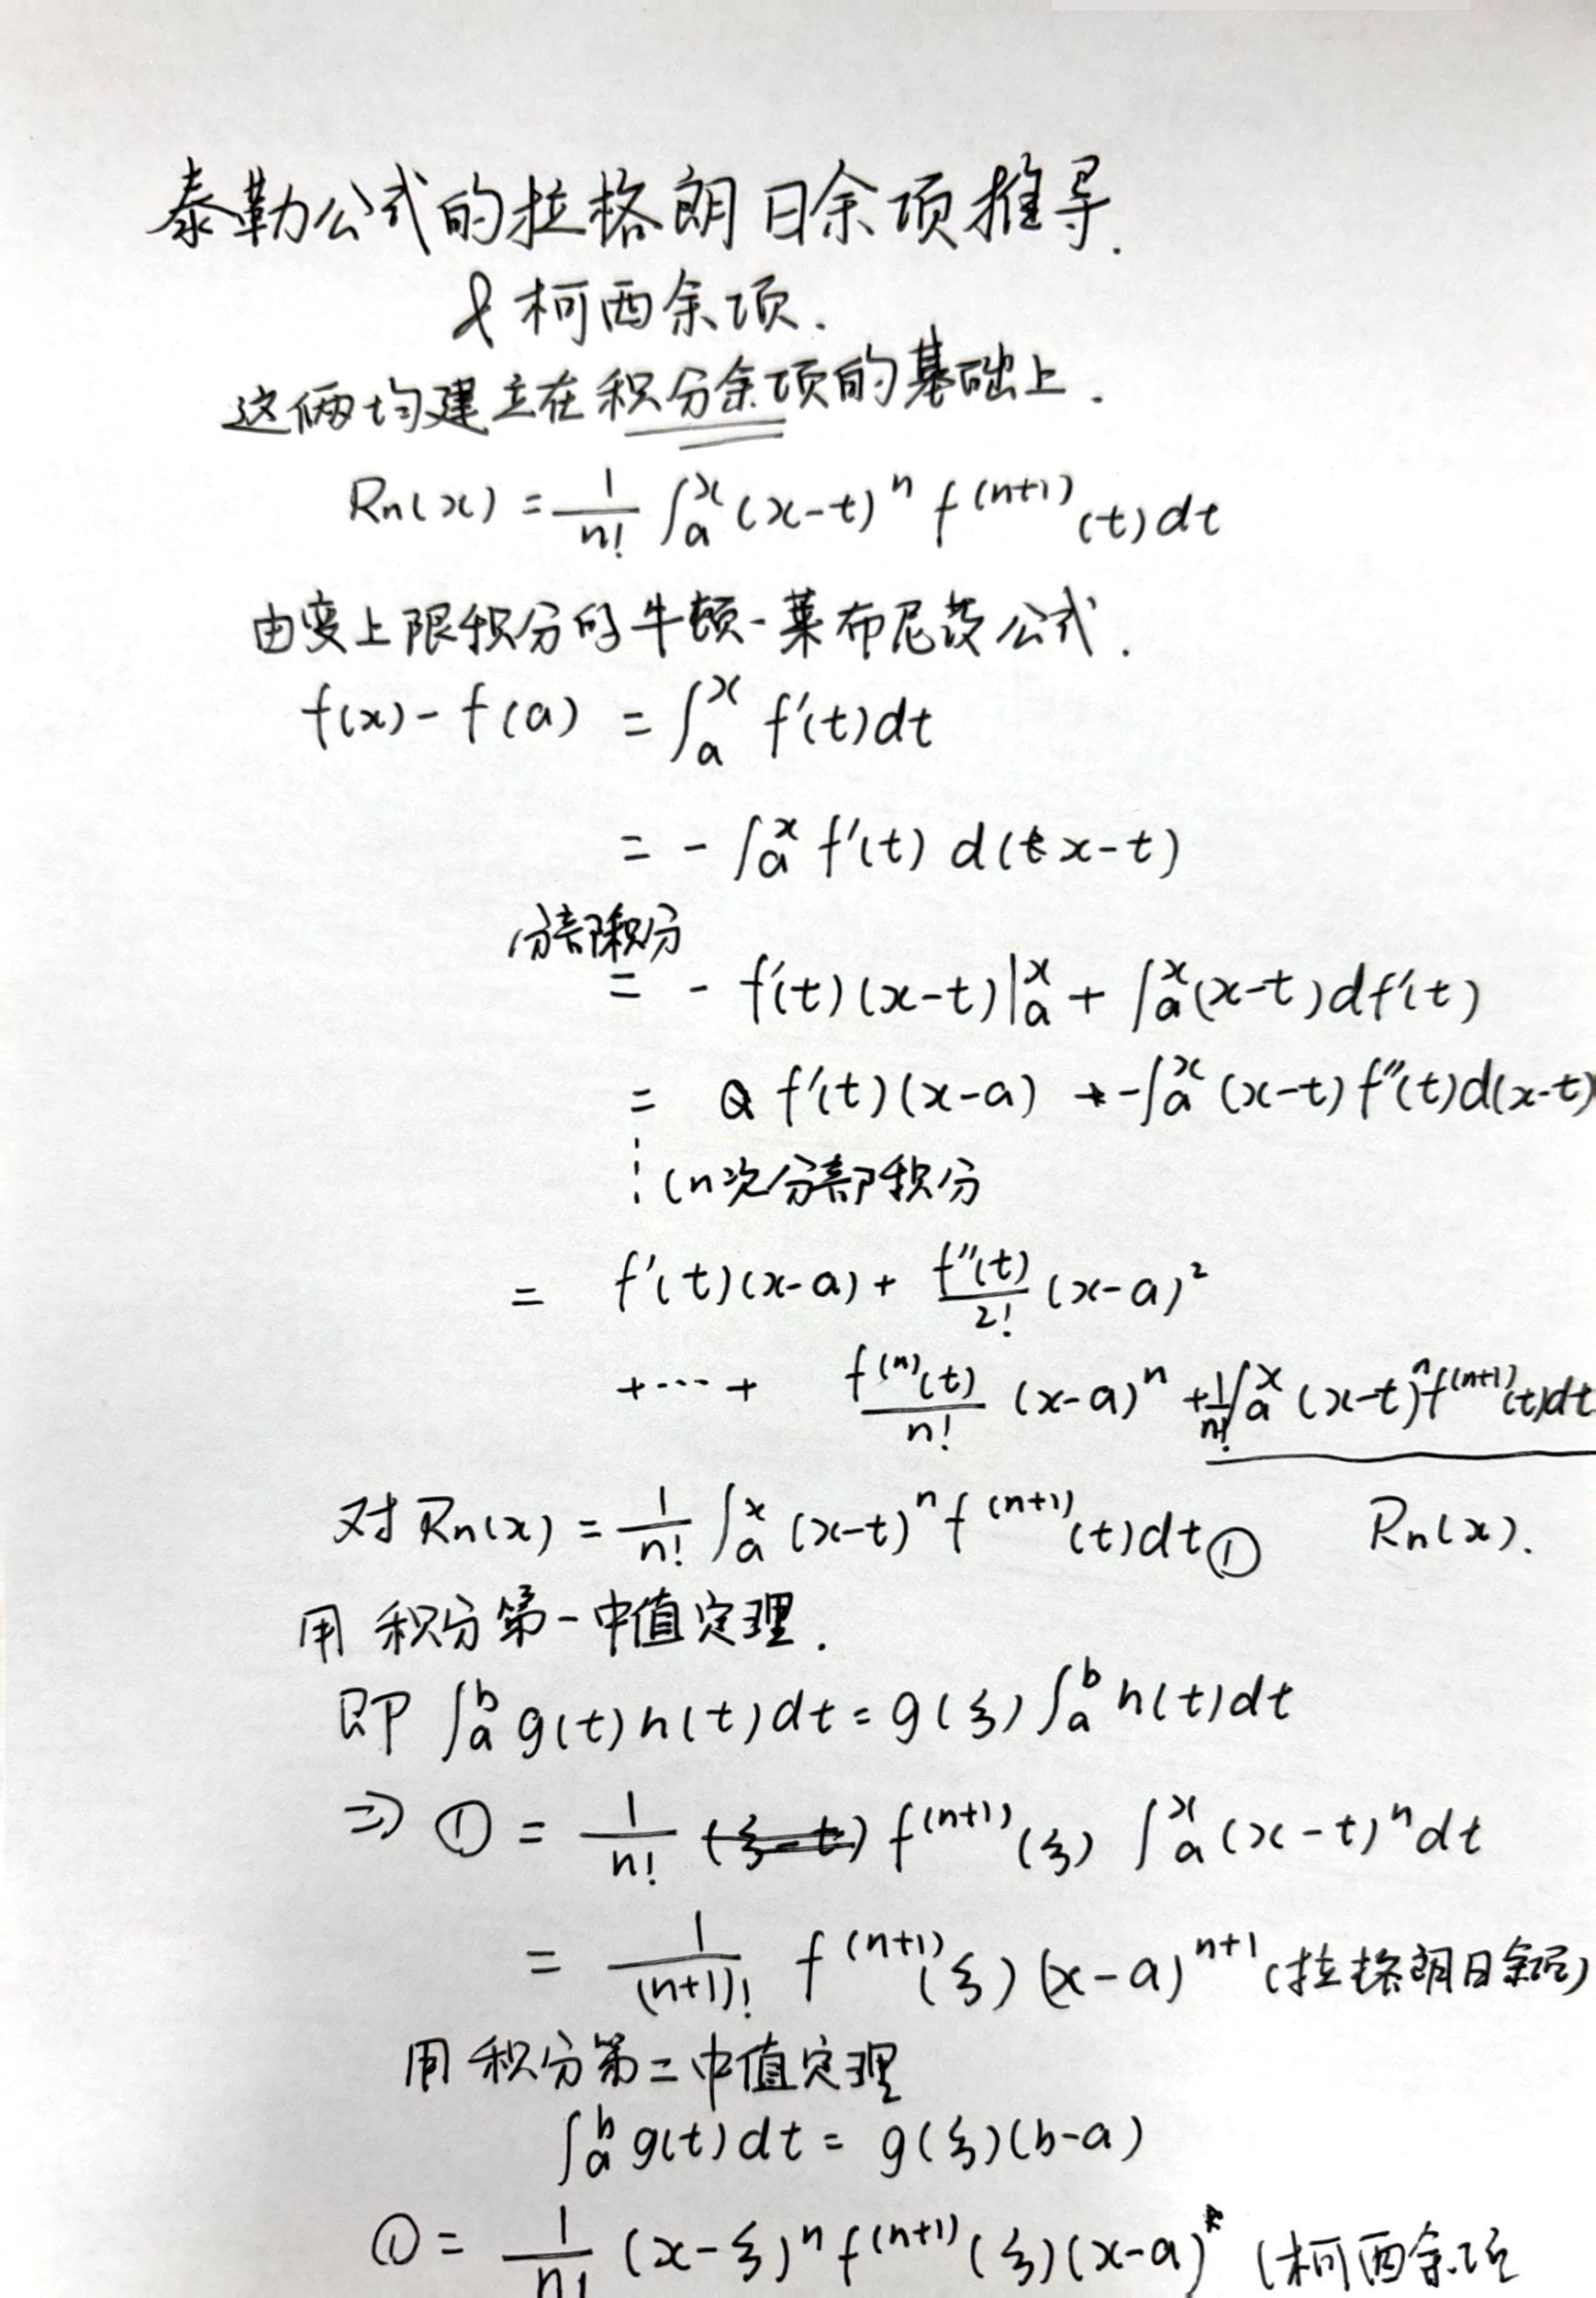 泰勒公式的拉格朗日余项推导.
& 柯西余项.
这俩均建立在积分余项的基础上.
Rn(x) = 1/n! ∫_a^x (x-t)^n f^(n+1)(t)dt
由变上限积分的牛顿-莱布尼茨公式.
f(x) - f(a) = ∫_a^x f'(t)dt
= - ∫_a^x f'(t) d(x-t)
分部积分
= - f'(t)(x-t)|_a^x + ∫_a^x (x-t)df'(t)
= f'(t)(x-a) - ∫_a^x (x-t)f''(t)d(x-t)
⋮ (n次分部积分
= f'(t)(x-a) + f''(t)/2! (x-a)²
+ ⋯ + f^(n)(t)/n! (x-a)^n + 1/n! ∫_a^x (x-t)^n f^(n+1)(t)dt
对 Rn(x) = 1/n! ∫_a^x (x-t)^n f^(n+1)(t)dt ① Rn(x).
用 积分第一中值定理.
即 ∫_a^b g(t)h(t)dt = g(ξ) ∫_a^b h(t)dt
⇒ ① = 1/n! f^(n+1)(ξ) ∫_a^x (x-t)^n dt
= 1/(n+1)! f^(n+1)(ξ) (x-a)^(n+1) (拉格朗日余项)
用 积分第二中值定理
∫_a^b g(t)dt = g(ξ)(b-a)
① = 1/n! (x-ξ)^n f^(n+1)(ξ)(x-a) (柯西余项